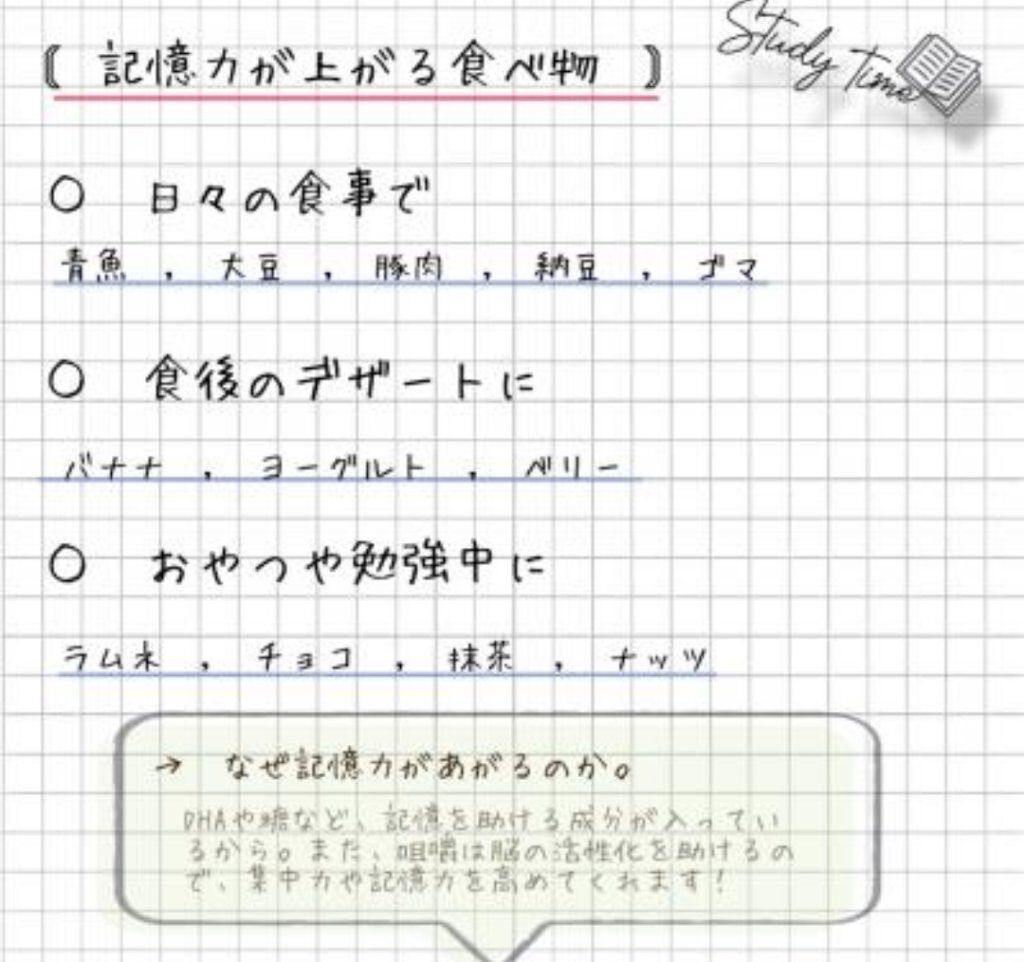 〘 記憶力が上がる食べ物 〙
Study Time
○ 日々の食事で
青魚 , 大豆 , 豚肉 , 納豆 , ゴマ
○ 食後のデザートに
バナナ , ヨーグルト , ベリー
○ おやつや勉強中に
ラムネ , チョコ , 抹茶 , ナッツ
→ なぜ記憶力があがるのか。
DHAや糖など、記憶を助ける成分が入ってい
るから。また、咀嚼は脳の活性化を助けるの
で、集中力や記憶力を高めてくれます!